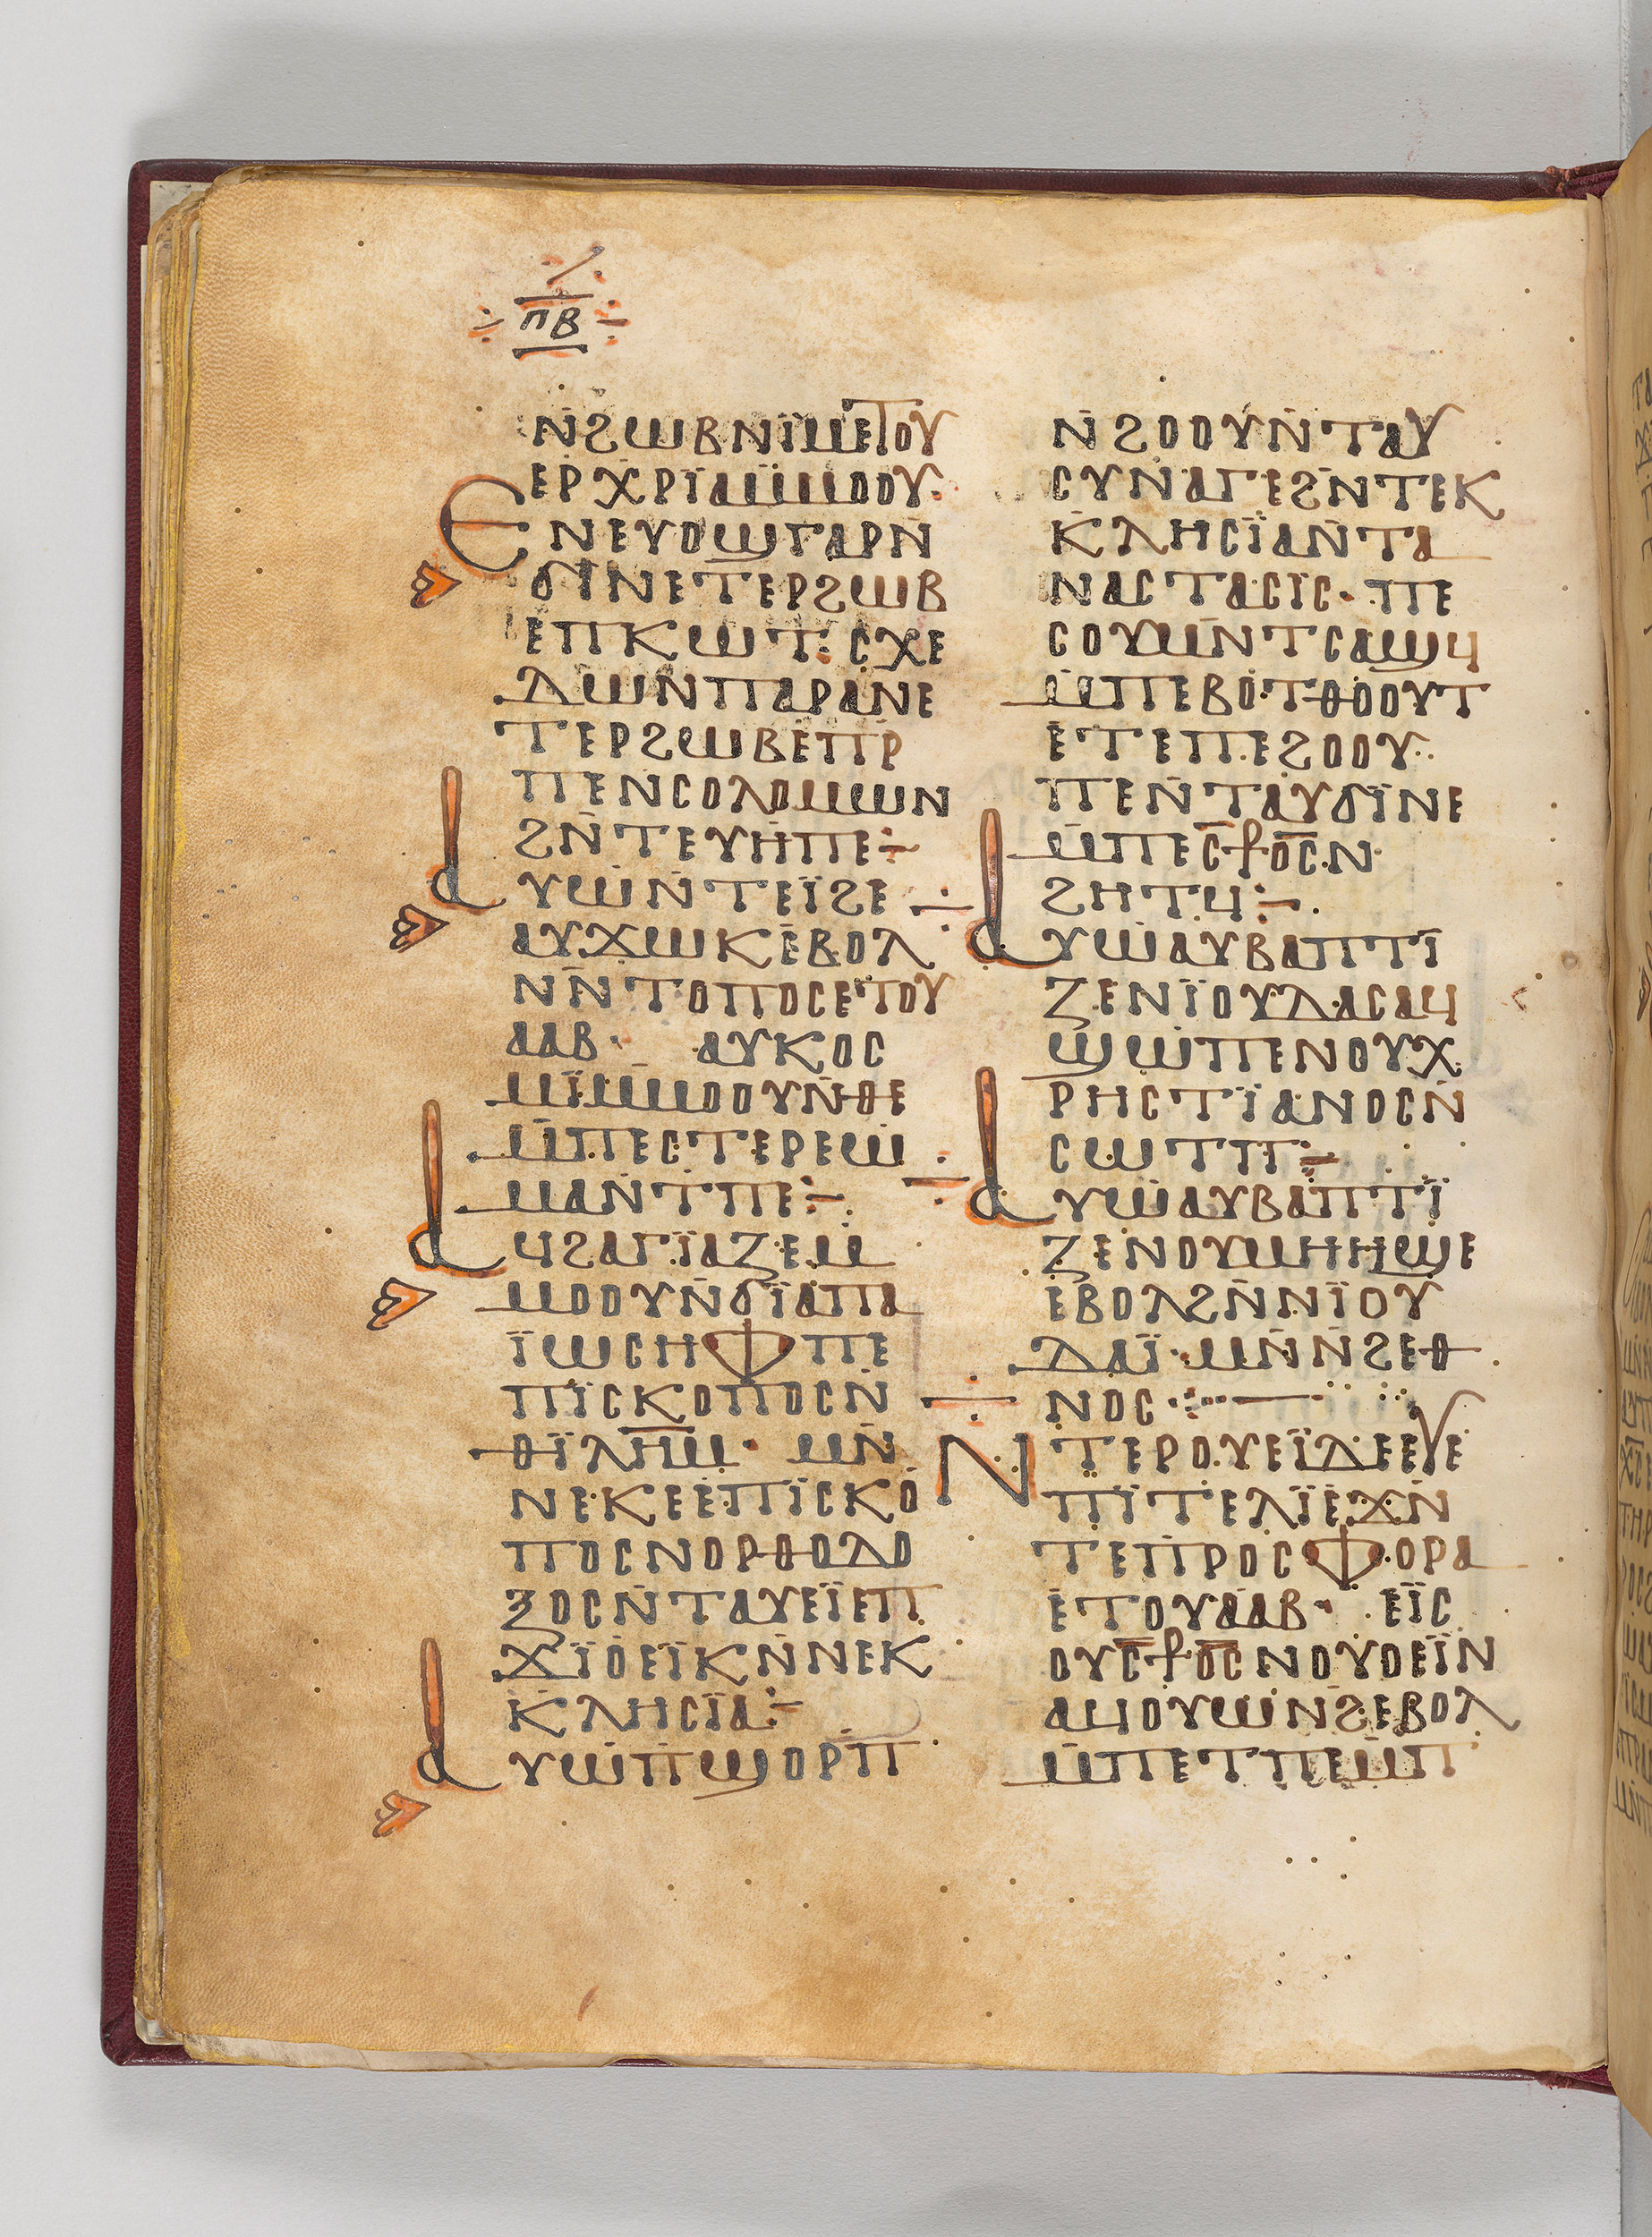 ⲡⲃ
ⲛ̇ϩⲱⲃⲛⲓ̈ⲙⲉⲧⲟⲩ
ⲉⲣⲭⲣⲓ̈ⲁⲙ̈ⲙⲟⲟⲩ·
Ⲉⲛⲉⲩⲟϣⲅⲁⲣⲛ̇
ϭⲓⲛⲉⲧⲉⲣϩⲱⲃ
ⲉⲡⲕⲱⲧ: ⲥⲭⲉ
ⲇⲱⲛⲡⲁⲣⲁⲛⲉ
ⲧⲉⲣϩⲱⲃⲉⲡⲣ̇
ⲡⲉⲛ̇ⲥⲟⲗⲟⲙⲱⲛ
ϩⲛ̇ⲧⲉⲩⲏⲡⲉ÷
Ⲁⲩⲱⲛ̇ⲧⲉⲓ̈ϩⲉ
ⲁⲩϫⲱⲕⲉ̇ⲃⲟⲗ
ⲛ̇ⲛ̇ⲧⲟⲡⲟⲥⲉⲧⲟⲩ
ⲁⲁⲃ· ⲁⲩⲕⲟⲥ
ⲙⲓ̈ⲙ̇ⲙⲟⲟⲩⲛ̇ⲑⲉ
ⲙ̇ⲡⲉⲥⲧⲉⲣⲉⲱ
ⲙⲁⲛ̇ⲧⲡⲉ÷
Ⲁϥϩⲁⲅⲓ̈ⲁⲍⲉⲙ̇
ⲙⲟⲟⲩⲛ̇ϭⲓ̈ⲁⲡⲁ
ⲓ̈ⲱⲥⲏⲫⲡⲉ
ⲡⲓ̈ⲥⲕⲟⲡⲟⲥⲛ̇
ⲑⲓ̈ⲗⲏ̅ⲙ̅· ⲙⲛ̇
ⲛⲉⲕⲉⲉ̇ⲡⲓ̈ⲥⲕⲟ
ⲡⲟⲥⲛⲟⲣⲑⲟⲇⲟ
ⲝⲟⲥⲛ̇ⲧⲁⲩⲉⲓ̈ⲉⲡ
ϫⲓ̈ⲟ̇ⲉⲓ̈ⲕⲛ̇ⲛⲉⲕ
ⲕⲗⲏⲥⲓ̈ⲁ÷
Ⲁⲩⲱⲡ̇ϣⲟⲣⲡ̅
ⲛ̇ϩⲟⲟⲩⲛ̇ⲧⲁⲩ
ⲥⲩⲛⲁⲅⲉϩⲛ̇ⲧⲉⲕ
ⲕⲗⲏⲥⲓ̈ⲁⲛ̇ⲧⲁ
ⲛⲁⲥⲧⲁⲥⲓⲥ· ⲡⲉ
ⲥⲟⲩⲙⲛ̇ⲧⲥⲁϣϥ
ⲙ̇ⲡⲉⲃⲟⲧⲑⲟⲟⲩⲧ
ⲉ̇ⲧⲉⲡⲉϩⲟⲟⲩ·
ⲡⲉⲛ̇ⲧⲁⲩϭⲓ̈ⲛⲉ
ⲙ̇ⲡⲉⲥ̅ⳁⲟ̅ⲥ̅ⲛ̇
ϩⲏⲧϥ÷
Ⲁⲩⲱⲁⲩⲃⲁⲡⲧⲓ̈
ⲍⲉⲛⲓ̈ⲟⲩⲇⲁⲥⲁϥ
ϣⲱⲡⲉⲛⲟⲩⲭ
ⲣⲏⲥⲧⲓ̈ⲁⲛⲟⲥⲛ̇
ⲥⲱⲧⲡ÷
Ⲁⲩⲱⲁⲩⲃⲁⲡⲧⲓ̈
ⲍⲉⲛⲟⲩⲙⲏⲏϣⲉ
ⲉⲃⲟⲗϩⲛ̇ⲛⲓ̈ⲟⲩ
ⲇⲁⲓ̈· ⲙⲛ̇ⲛ̇ϩⲉⲑ
ⲛⲟⲥ·
Ⲛⲧⲉⲣⲟⲩⲉⲓ̈ⲇⲉⲉⲩⲉ
ⲡⲓ̈ⲧⲉⲗⲓ̈ⲉ̇ϫⲛ̇
ⲧⲉⲡⲣⲟⲥⲫⲟⲣⲁ
ⲉ̇ⲧⲟⲩⲁⲁⲃ· ⲉⲓ̈ⲥ
ⲟⲩⲥ̅ⳁⲟ̅ⲥ̅ⲛⲟⲩⲟⲉⲓ̈ⲛ
ⲁϥⲟⲩⲱⲛ̇ϩⲉⲃⲟⲗ
ⲙ̇ⲡⲉⲧⲡⲉⲙ̇ⲡ